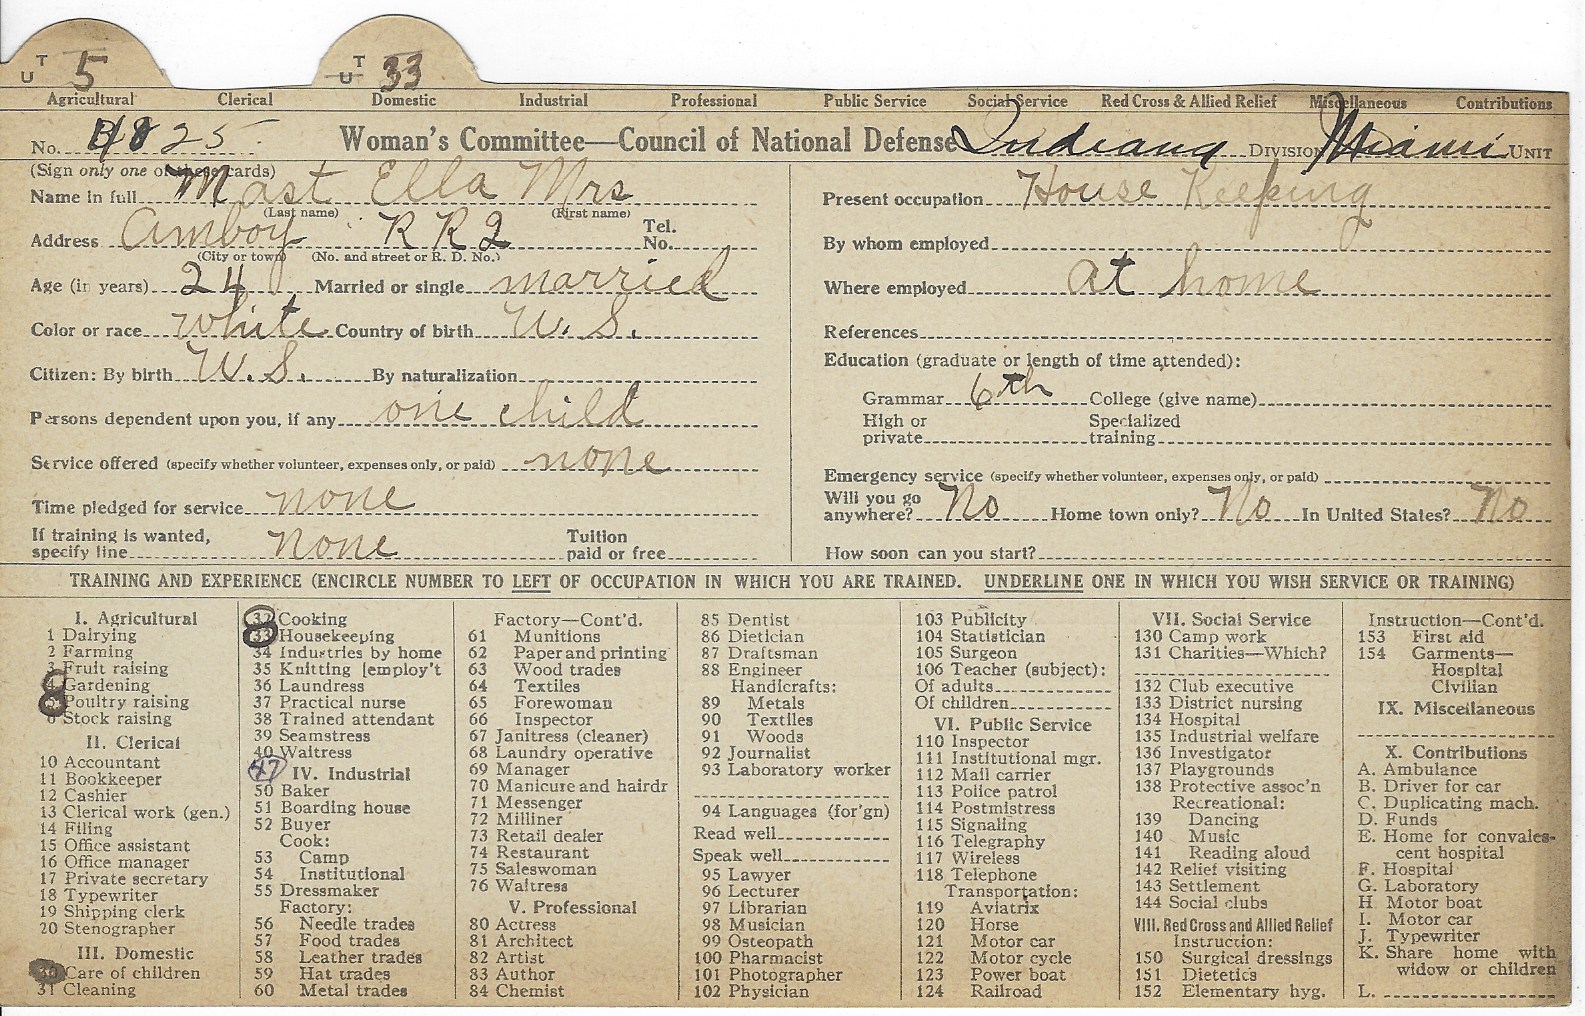 T
U 5
T
U 33
Agricultural Clerical Domestic Industrial Professional Public Service Social Service Red Cross & Allied Relief Miscellaneous Contributions
No. 25 Woman's Committee—Council of National Defense Indiana DIVISION Miami UNIT
(Sign only one of these cards)
Name in full Mast Ella Mrs
(Last name) (First name)
Address Amboy R R 2 Tel. No.
(City or town) (No. and street or R. D. No.)
Age (in years) 24 Married or single married
Color or race white Country of birth U. S.
Citizen: By birth U. S. By naturalization
Persons dependent upon you, if any one child
Service offered (specify whether volunteer, expenses only, or paid) none
Time pledged for service none
If training is wanted, specify line none Tuition paid or free
Present occupation House Keeping
By whom employed
Where employed at home
References
Education (graduate or length of time attended):
Grammar 6th College (give name)
High or private Specialized training
Emergency service (specify whether volunteer, expenses only, or paid)
Will you go anywhere? No Home town only? No In United States? No
How soon can you start?
TRAINING AND EXPERIENCE (ENCIRCLE NUMBER TO LEFT OF OCCUPATION IN WHICH YOU ARE TRAINED. UNDERLINE ONE IN WHICH YOU WISH SERVICE OR TRAINING)
I. Agricultural
1 Dairying
2 Farming
3 Fruit raising
4 Gardening
5 Poultry raising
6 Stock raising
II. Clerical
10 Accountant
11 Bookkeeper
12 Cashier
13 Clerical work (gen.)
14 Filing
15 Office assistant
16 Office manager
17 Private secretary
18 Typewriter
19 Shipping clerk
20 Stenographer
III. Domestic
30 Care of children
31 Cleaning
32 Cooking
33 Housekeeping
34 Industries by home
35 Knitting [employ't
36 Laundress
37 Practical nurse
38 Trained attendant
39 Seamstress
40 Waitress
47
IV. Industrial
50 Baker
51 Boarding house
52 Buyer
Cook:
53 Camp
54 Institutional
55 Dressmaker
Factory:
56 Needle trades
57 Food trades
58 Leather trades
59 Hat trades
60 Metal trades
Factory—Cont'd.
61 Munitions
62 Paper and printing
63 Wood trades
64 Textiles
65 Forewoman
66 Inspector
67 Janitress (cleaner)
68 Laundry operative
69 Manager
70 Manicure and hairdr
71 Messenger
72 Milliner
73 Retail dealer
74 Restaurant
75 Saleswoman
76 Waitress
V. Professional
80 Actress
81 Architect
82 Artist
83 Author
84 Chemist
85 Dentist
86 Dietician
87 Draftsman
88 Engineer
Handicrafts:
89 Metals
90 Textiles
91 Woods
92 Journalist
93 Laboratory worker
94 Languages (for'gn)
Read well
Speak well
95 Lawyer
96 Lecturer
97 Librarian
98 Musician
99 Osteopath
100 Pharmacist
101 Photographer
102 Physician
103 Publicity
104 Statistician
105 Surgeon
106 Teacher (subject):
Of adults
Of children
VI. Public Service
110 Inspector
111 Institutional mgr.
112 Mail carrier
113 Police patrol
114 Postmistress
115 Signaling
116 Telegraphy
117 Wireless
118 Telephone
Transportation:
119 Aviatrix
120 Horse
121 Motor car
122 Motor cycle
123 Power boat
124 Railroad
VII. Social Service
130 Camp work
131 Charities—Which?
132 Club executive
133 District nursing
134 Hospital
135 Industrial welfare
136 Investigator
137 Playgrounds
138 Protective assoc'n
Recreational:
139 Dancing
140 Music
141 Reading aloud
142 Relief visiting
143 Settlement
144 Social clubs
VIII. Red Cross and Allied Relief
Instruction:
150 Surgical dressings
151 Dietetics
152 Elementary hyg.
Instruction—Cont'd.
153 First aid
154 Garments—
Hospital
Civilian
IX. Miscellaneous
X. Contributions
A. Ambulance
B. Driver for car
C. Duplicating mach.
D. Funds
E. Home for convales-
cent hospital
F. Hospital
G. Laboratory
H Motor boat
I. Motor car
J. Typewriter
K. Share home with
widow or children
L.